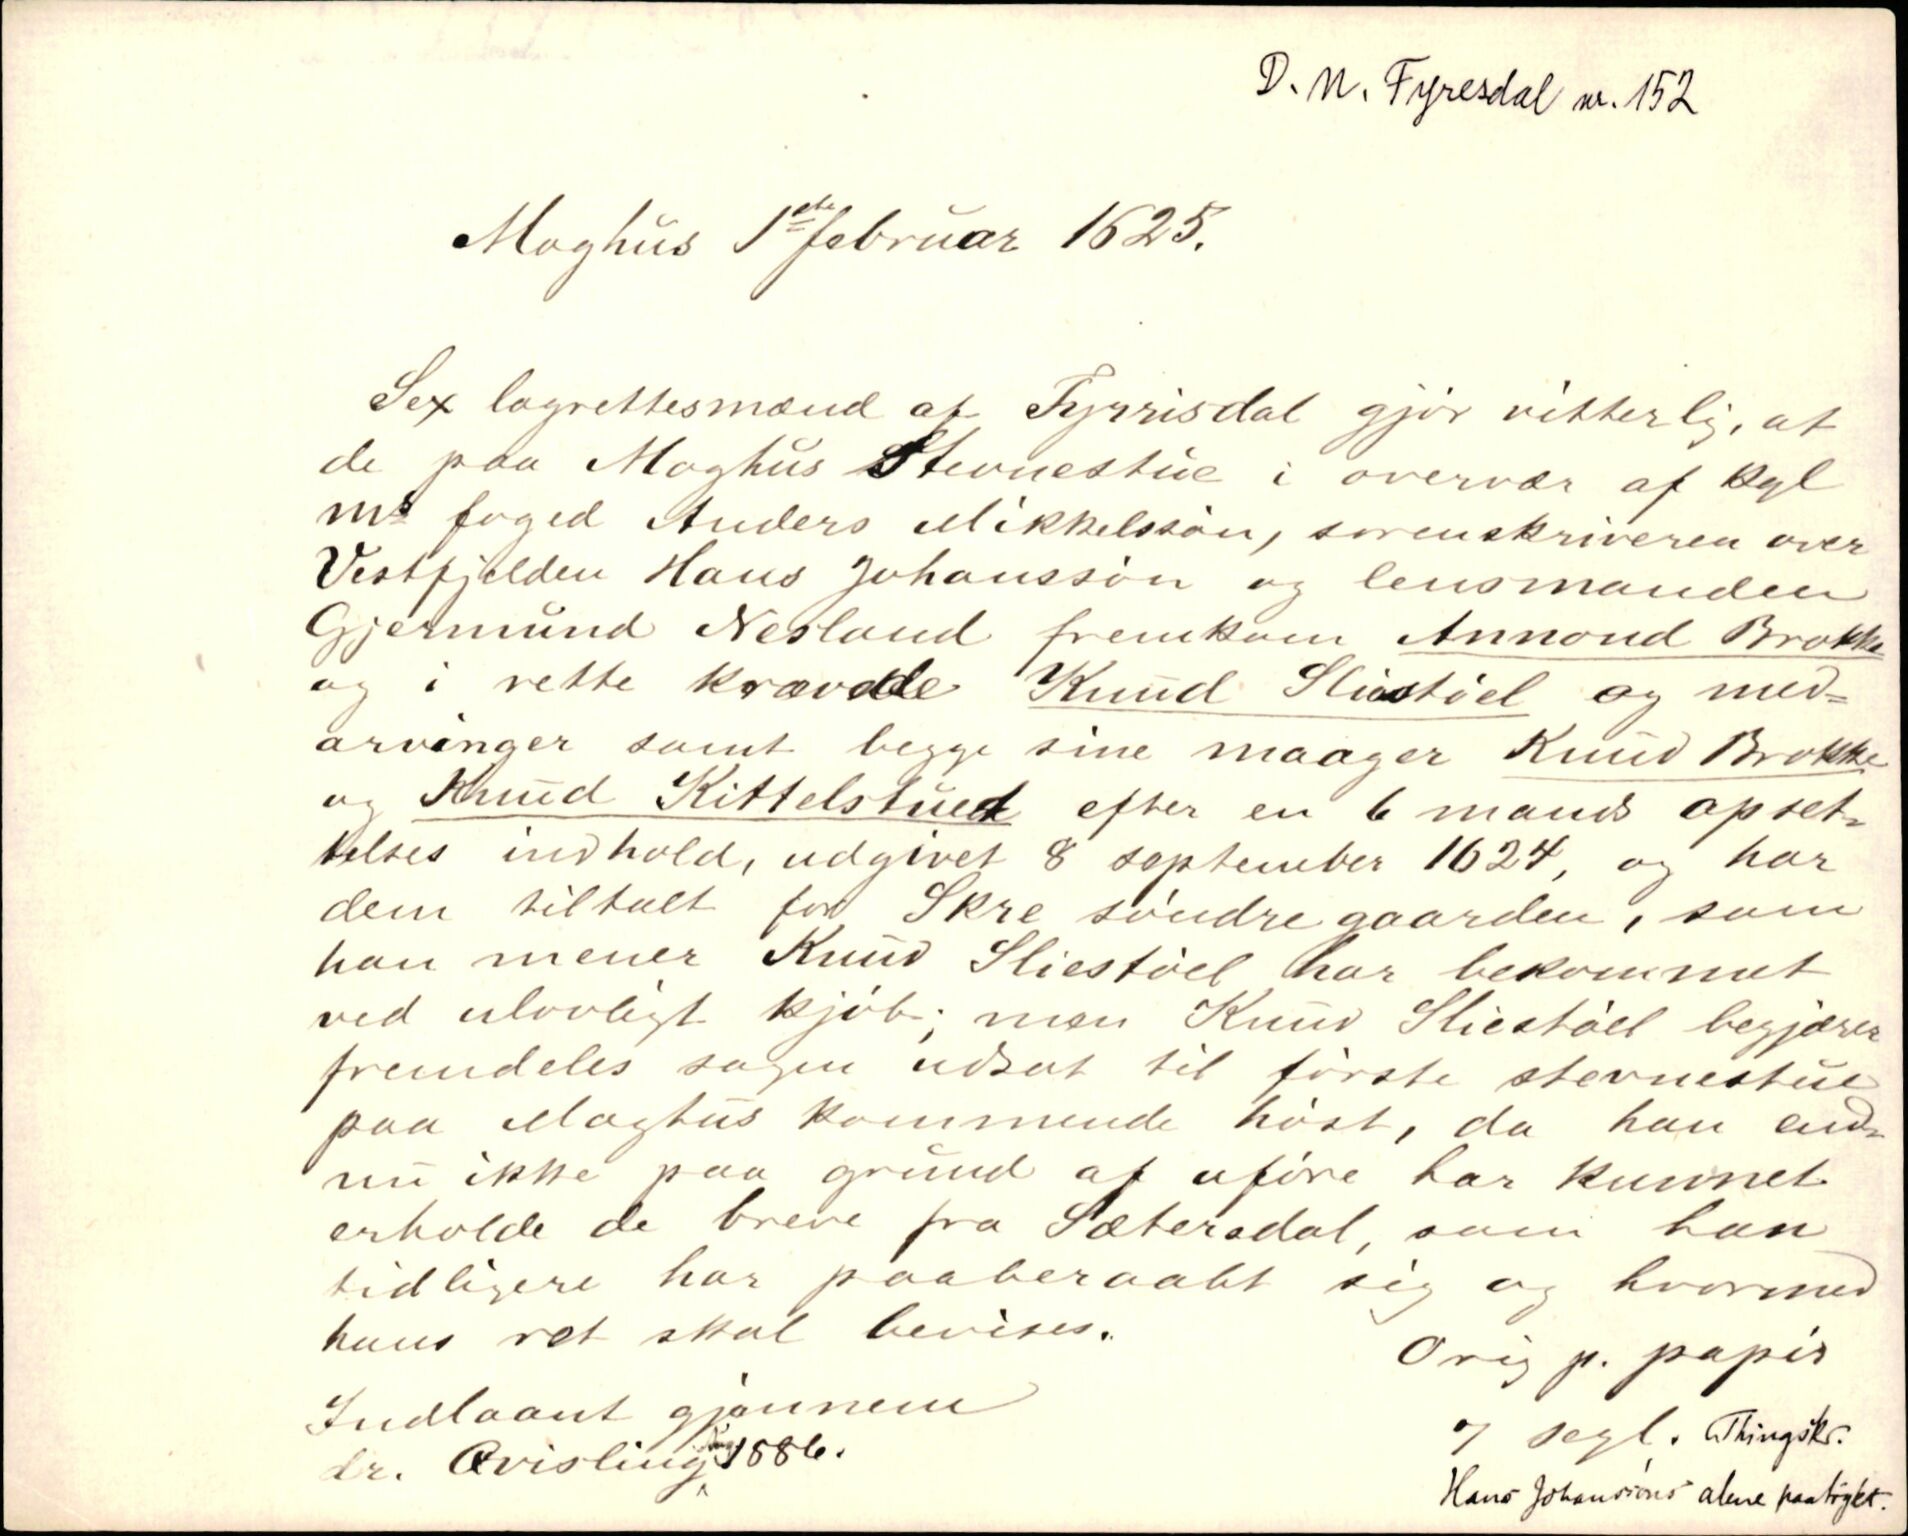 D. N. Fyresdal nr. 152
Moghus 1ste februar 1625.
Sex lagrettesmænd af Fyrrisdal gjör vitterlig, at
de paa Moghus Stevnestue i overvær af kgl
ms foged Anders Mikkelssön, sorenskriveren over
Vestfjelden Hans Johanssön og lensmanden
Gjermund Nesland fremkom Annond Brokke
og i rette krævde Knud Sliestöel og med=
arvinger samt begge sine maager Knud Brokke
og Knud Kittelstued efter en 6 mands opset-
telses indhold, udgivet 8 september 1624, og har
dem tiltalt for Skre söndre gaarden, som
han mener Knud Sliestöel har bekommet
ved ulovligt kjöb; men Knud Sliestöel begjærer
fremdeles sagen udsat til förste stevnestue
paa Moghus kommende höst, da han end-
nu ikke paa grund af uföre har kunnet
erholde de breve fra Sætersdal, som han
tidligere har paaberaabt sig og hvormed
hans ret skal bevises.
Orig p. papir
7 segl. Thingskr.
Hans Johanssöns alene paatrykt.
Indlaant gjönnem
dr. Qvisling 1886.